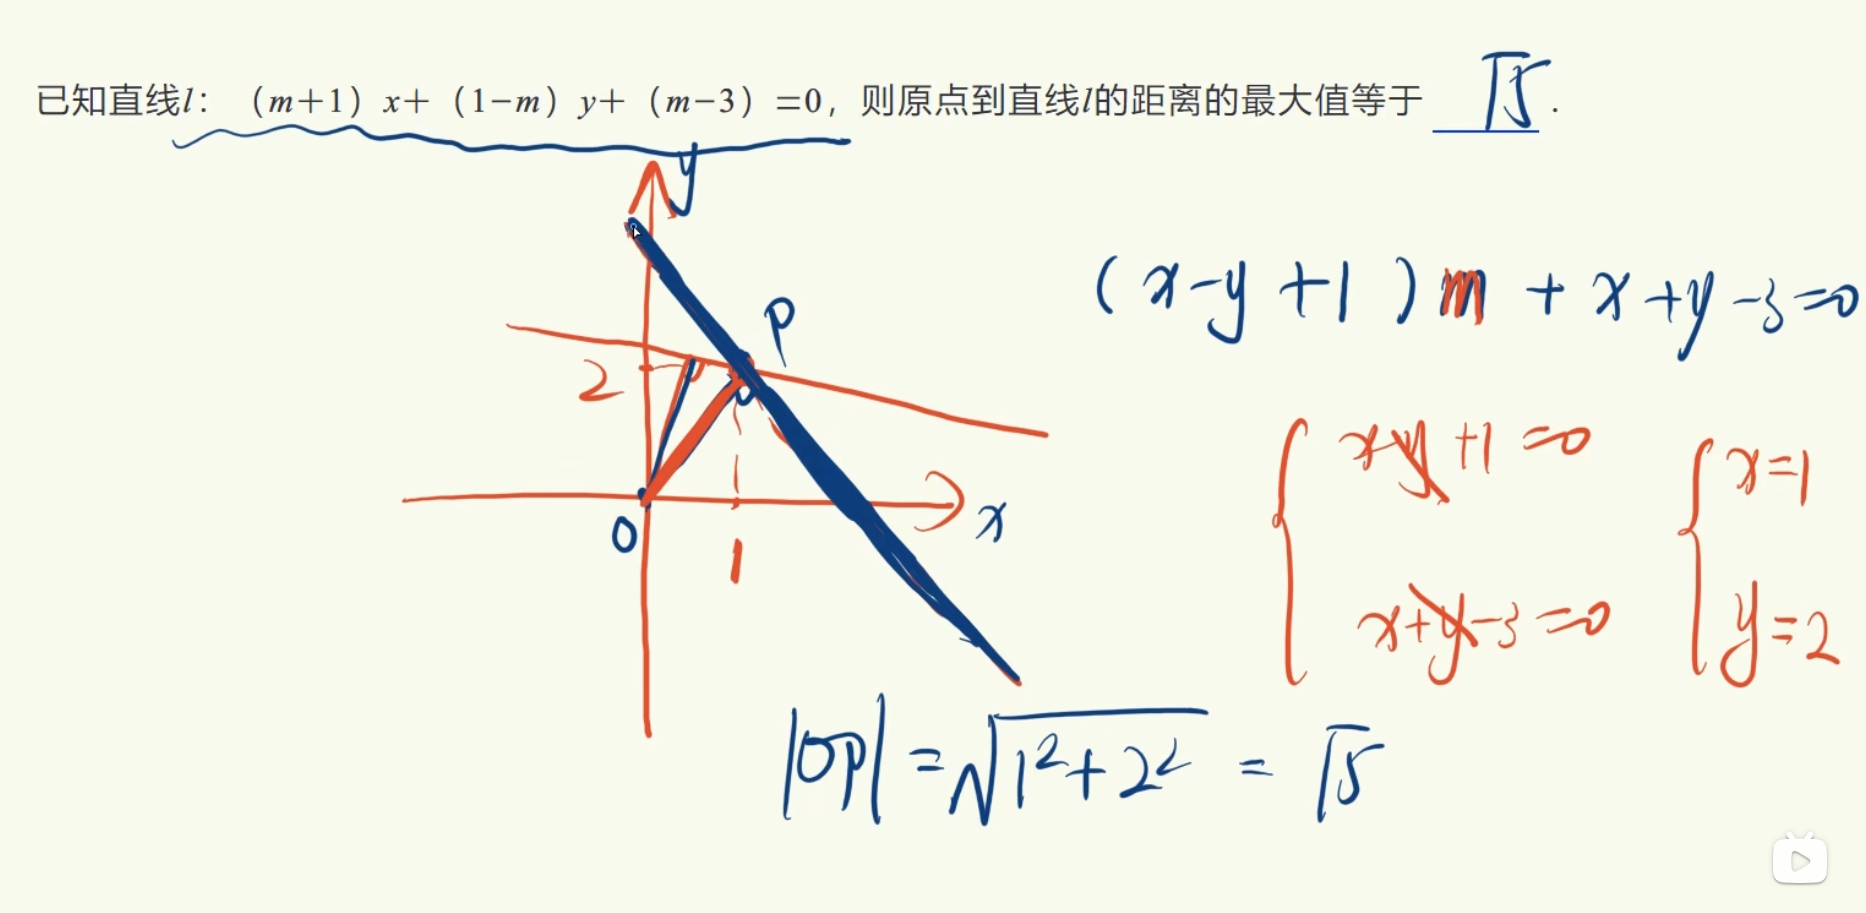 已知直线l：（m+1）x+（1-m）y+（m-3）=0，则原点到直线l的距离的最大值等于 √5 .
y
P
(x-y+1)m+x+y-3=0
2
x-y+1=0
x=1
O
x
1
x+y-3=0
y=2
|OP|=√1²+2² = √5